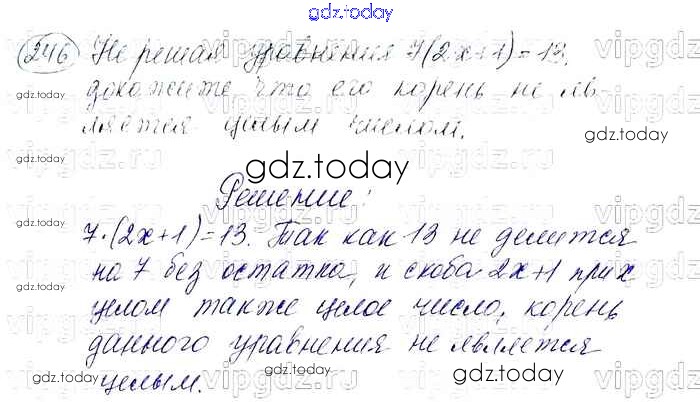 gdz.today
246 Не решая уравнения 7(2x+1)=13,
докажите что его корень не яв-
ляется целым числом.
gdz.today
Решение:
7·(2x+1)=13. Так как 13 не делится
на 7 без остатка, и скоба 2x+1 при x
целом также целое число, корень
данного уравнения не является
целым.
gdz.today
gdz.today
gdz.today
gdz.today
gdz.today
gdz.today
gdz.today
gdz.today
vipgdz.ru
vipgdz.ru
vipgdz.ru